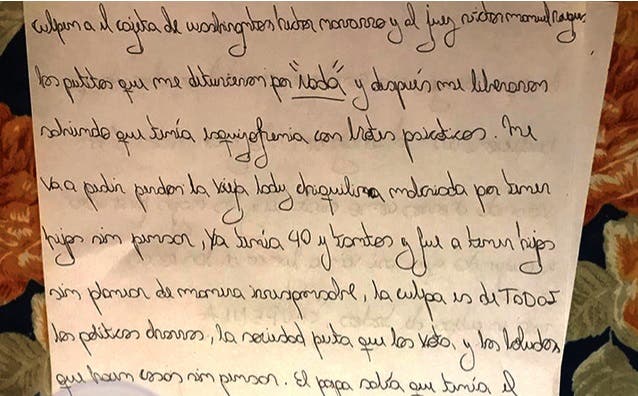 culpen a el cajeta de washington hector navarro y al juez victor manuel
los putitos que me detuvieron por "NADA" y después me liberaron
sabiendo que tenía esquizofrenia con brotes psicoticos. Me
va a pedir perdon la vieja lady chiquilina malcriada por tener
hijos sin pensar, ya tenía 40 y tantos y fue a tener hijos
sin planear de manera irresponsable, la culpa es de TODOS
los politicos chorros, la sociedad puta que los vota y los boludos
que hacen cosas sin pensar. El papa sabía que tenía el